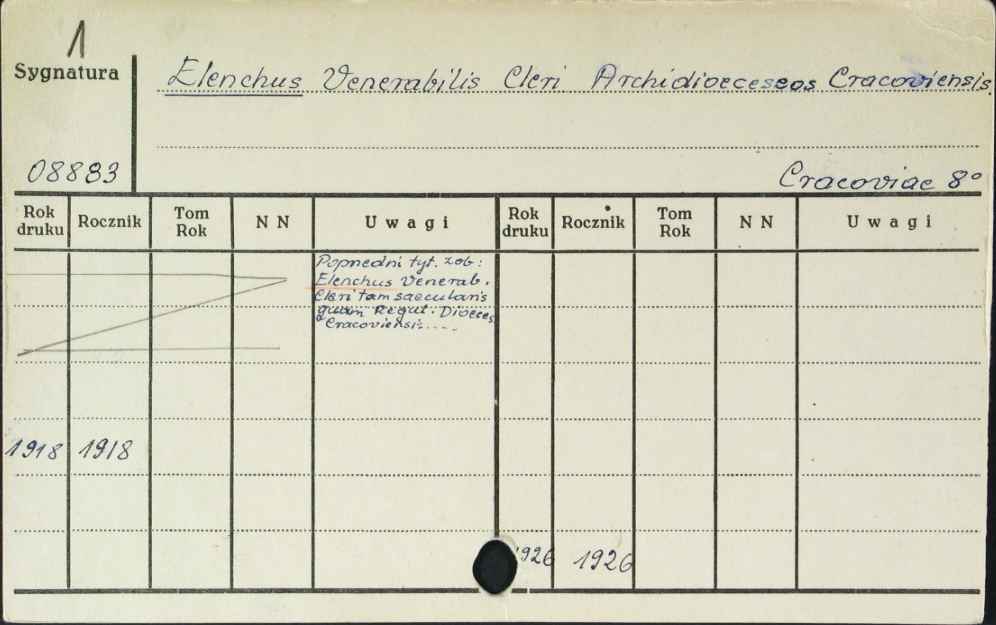 1
Sygnatura
Elenchus Venerabilis Cleri Archidioeceseos Cracoviensis.
08883
Cracoviae 8°
Rok druku Rocznik Tom Rok N N Uwagi Rok druku Rocznik Tom Rok N N Uwagi
Poprzedni tyt. zob:
Elenchus Venerab.
Cleri tam saecularis
quam Regul. Dioeces.
Cracoviensis....
1918 1918
1926 1926